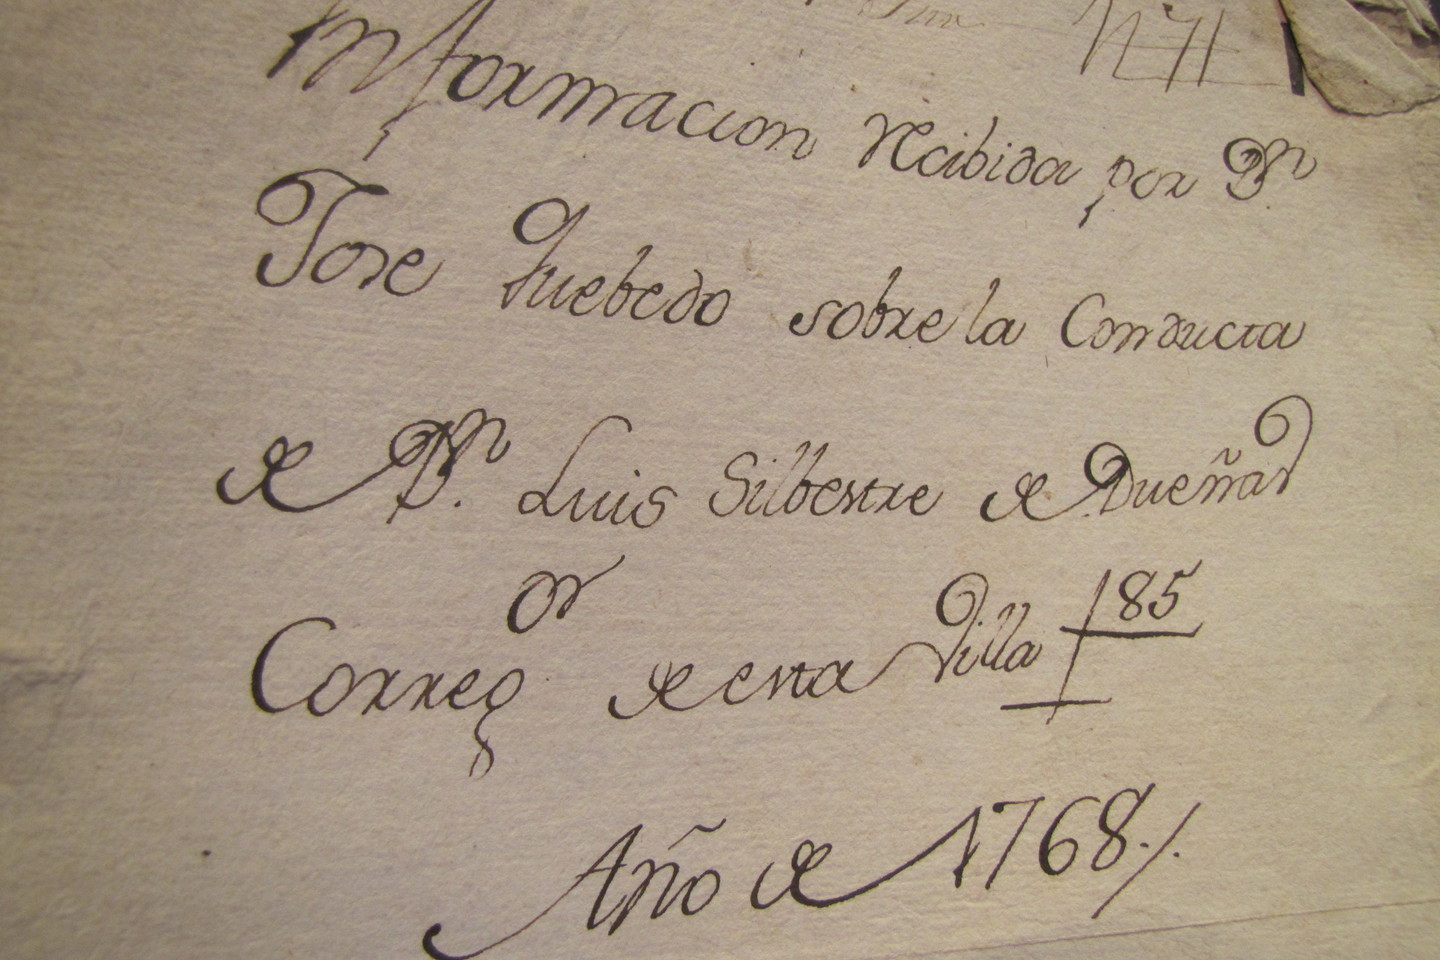 Informacion recibida por Dn
Jose Quebedo sobre la Conducta
de Dn. Luis Silbestre de Dueñas
Correg.or de esta Villa 85
Año de 1768./.